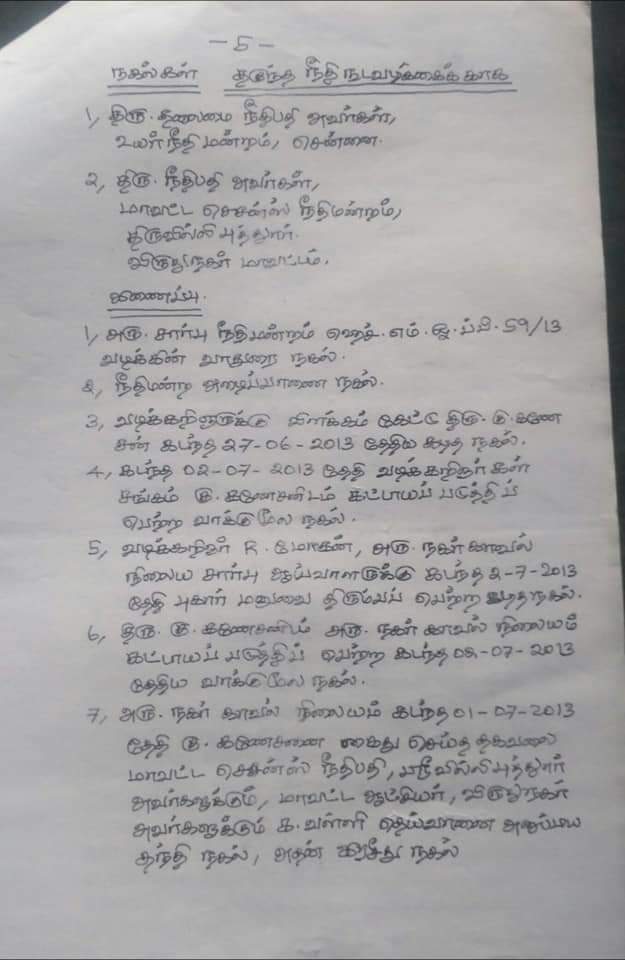 - 5 -
நகல்கள் தகுந்த நீதி நடவடிக்கைக் காக
1, திரு. தலைமை நீதிபதி அவர்கள்,
உயர் நீதி மன்றம், சென்னை.
2, திரு. நீதிபதி அவர்கள்,
மாவட்ட செசன்ஸ் நீதிமன்றம்,
திருவில்லி புத்தூர்.
விருதுநகர் மாவட்டம்.
இணைப்பு.
1, அரு. சார்பு நீதிமன்றம் ஹெச். எம். ஓ. பி. 59/13
வழக்கின் வாதுரை நகல்.
2, நீதிமன்ற அழைப்பாணை நகல்.
3, வழக்கறிஞருக்கு விளக்கம் கேட்டு திரு. கு. கணே
சன் கடந்த 27-06-2013 தேதிய கடித நகல்.
4, கடந்த 02-07-2013 தேதி வழக்கறிஞர் கள்
சங்கம் கு. கணேசனிடம் கட்டாயப் படுத்திப்
பெற்ற வாக்குமூல நகல்.
5, வழக்கறிஞர் R. மோகன், அரு. நகர் காவல்
நிலைய சார்பு ஆய்வாளருக்கு கடந்த 2-7-2013
தேதி புகார் மனுவை திரும்பப் பெற்ற கடிதநகல்.
6, திரு. கு. கணேசனிடம் அரு. நகர் காவல் நிலையம்
கட்டாயப் படுத்திப் பெற்ற கடந்த 02-07-2013
தேதிய வாக்குமூல நகல்.
7, அரு. நகர் காவல் நிலையம் கடந்த 01-07-2013
தேதி கு. கணேசனை கைது செய்த தகவலை
மாவட்ட செசன்ஸ் நீதிபதி, ஸ்ரீவில்லிபுத்தூர்
அவர்களுக்கும், மாவட்ட ஆட்சியர், விருதுநகர்
அவர்களுக்கும் க. வள்ளி தெய்வானை அனுப்பிய
தந்தி நகல், அதன் ரசீது நகல்